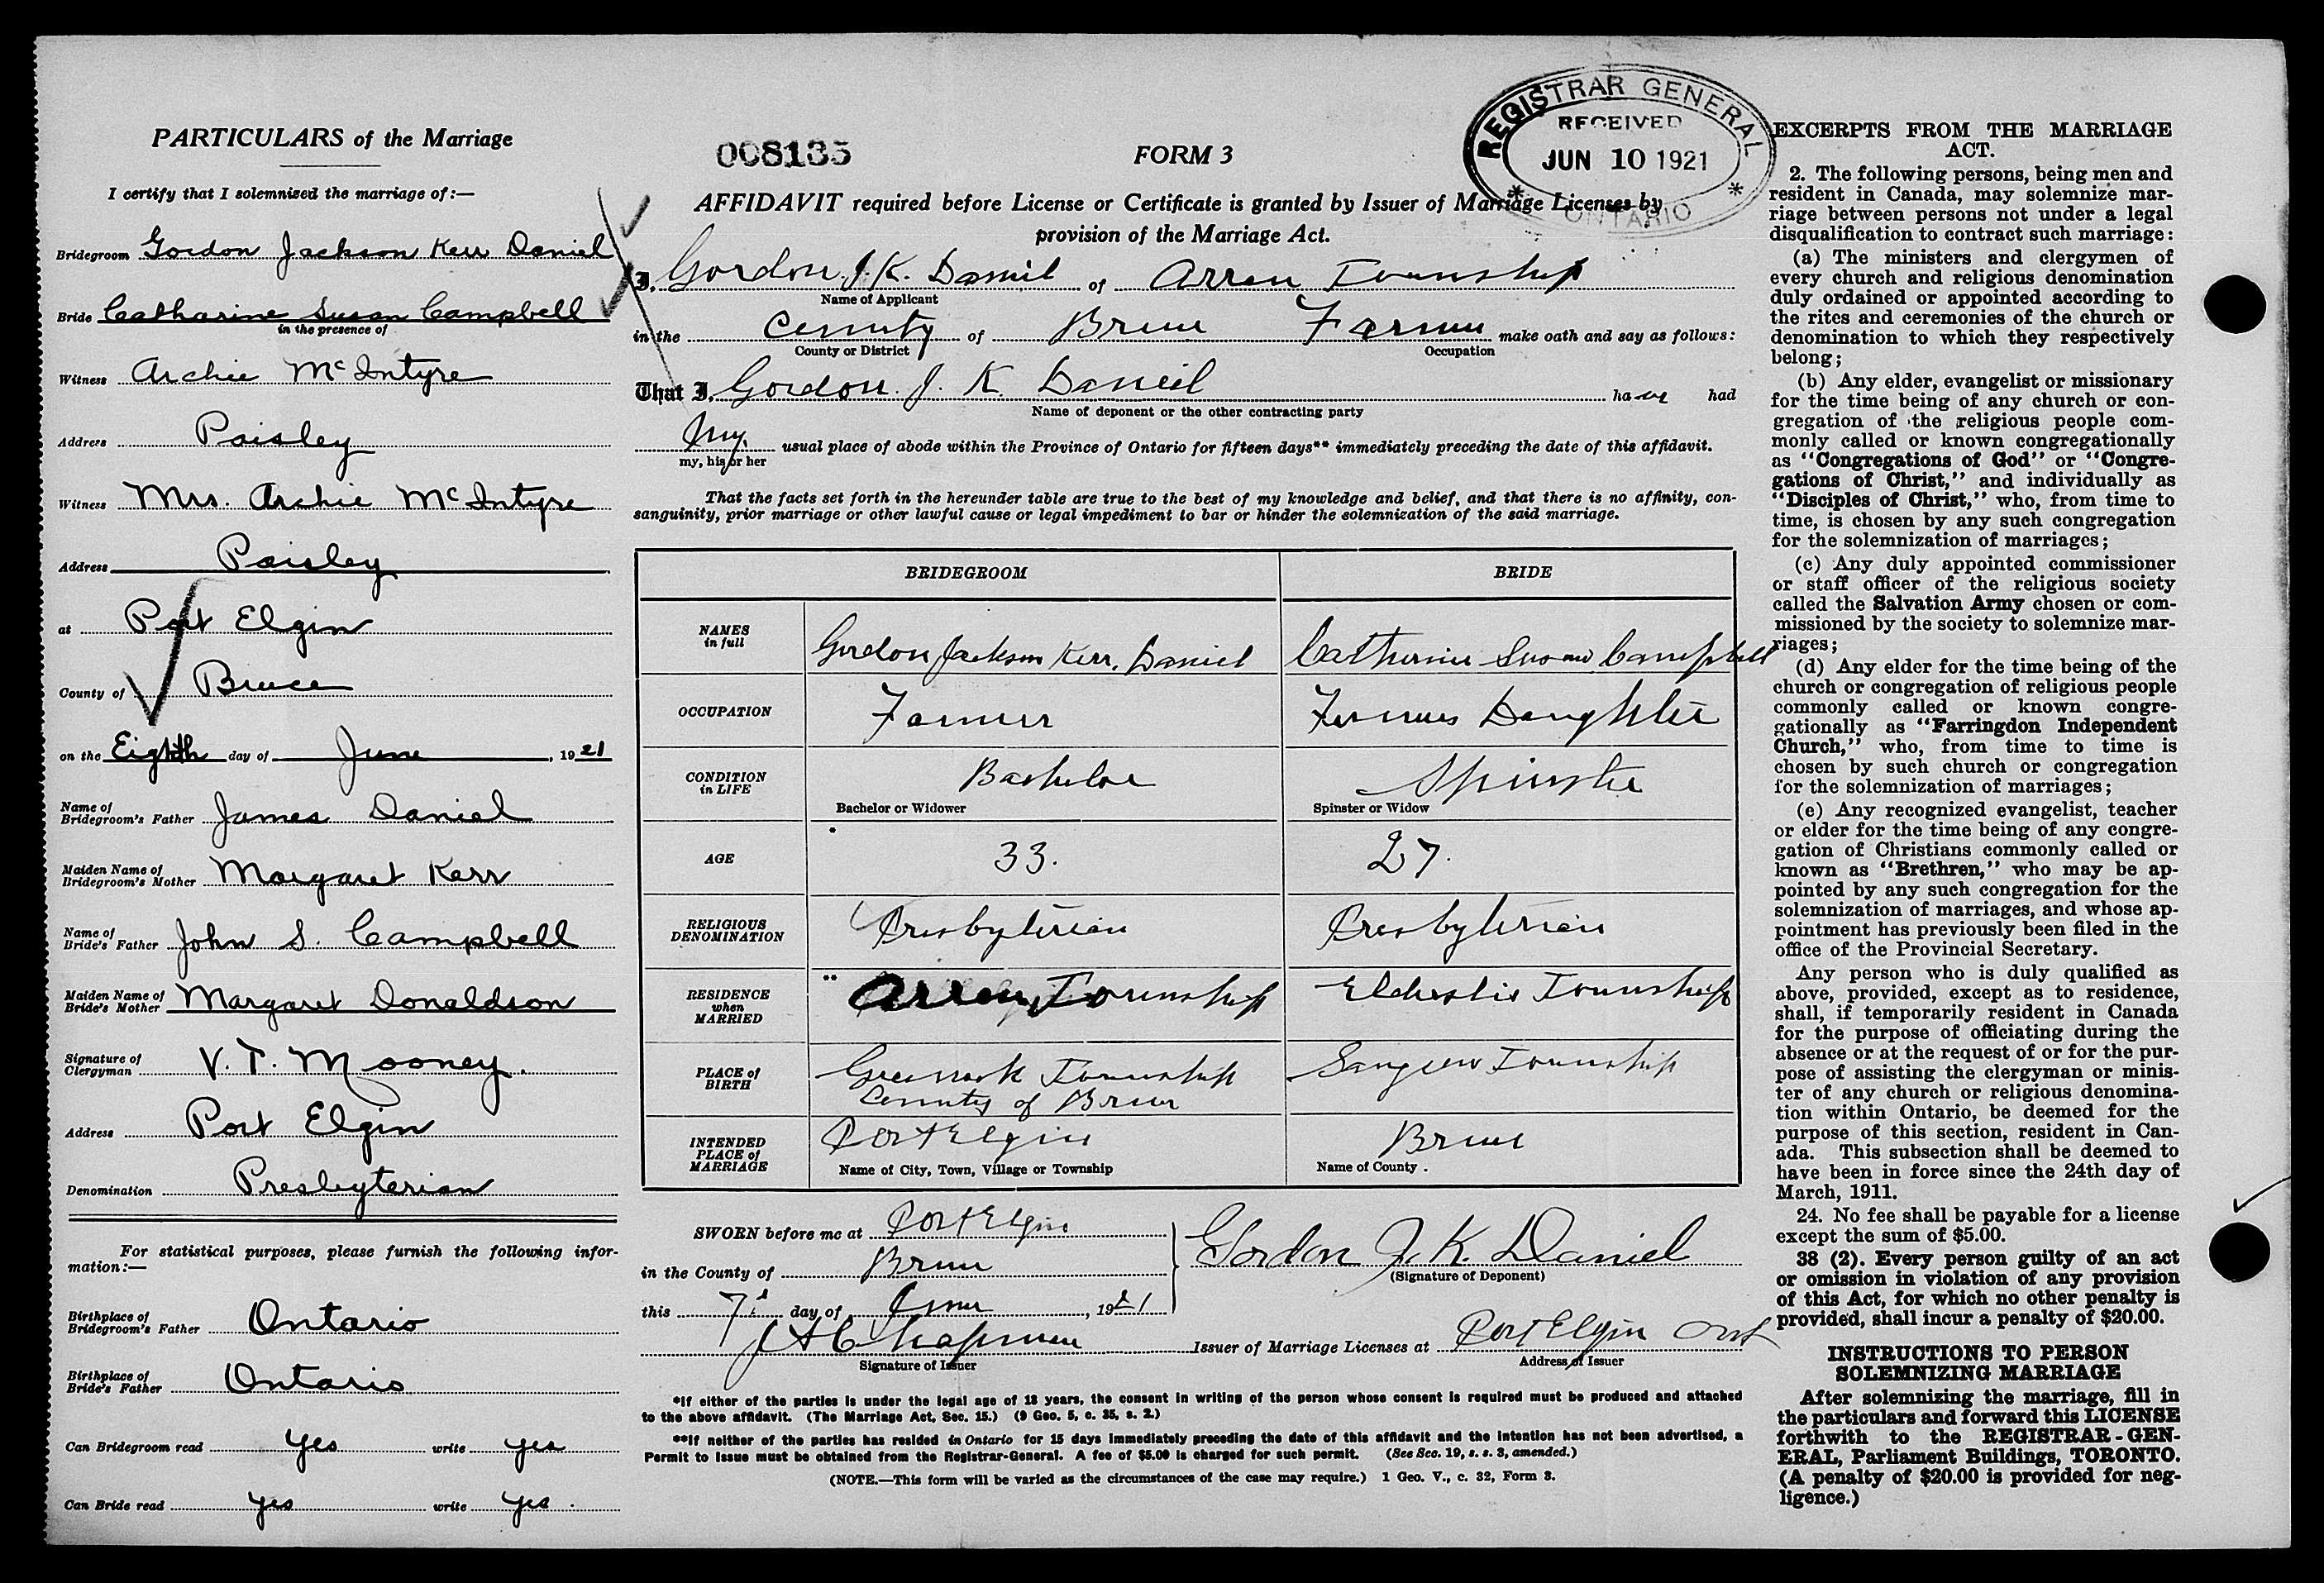 PARTICULARS of the Marriage
I certify that I solemnized the marriage of:—
Bridegroom Gordon Jackson Kerr Daniel
Bride Catharine Susan Campbell
in the presence of
Witness Archie McIntyre
Address Paisley
Witness Mrs. Archie McIntyre
Address Paisley
at Port Elgin
County of Bruce
on the Eighth day of June, 1921
Name of
Bridegroom's Father James Daniel
Maiden Name of
Bridegroom's Mother Margaret Kerr
Name of
Bride's Father John S. Campbell
Maiden Name of
Bride's Mother Margaret Donaldson
Signature of
Clergyman V. T. Mooney.
Address Port Elgin
Denomination Presbyterian
For statistical purposes, please furnish the following infor-
mation:—
Birthplace of
Bridegroom's Father Ontario
Birthplace of
Bride's Father Ontario
Can Bridegroom read yes write yes
Can Bride read yes write yes.
008135
FORM 3
REGISTRAR GENERAL
RECEIVED
JUN 10 1921
* ONTARIO *
AFFIDAVIT required before License or Certificate is granted by Issuer of Marriage Licenses by
provision of the Marriage Act.
I, Gordon J. K. Daniel of Arran Township
Name of Applicant
in the County of Bruce Farmer make oath and say as follows:
County or District Occupation
That I, Gordon J. K. Daniel have had
Name of deponent or the other contracting party
my usual place of abode within the Province of Ontario for fifteen days** immediately preceding the date of this affidavit.
my, his or her
That the facts set forth in the hereunder table are true to the best of my knowledge and belief, and that there is no affinity, con-
sanguinity, prior marriage or other lawful cause or legal impediment to bar or hinder the solemnization of the said marriage.
BRIDEGROOM BRIDE
NAMES
in full
Gordon Jackson Kerr Daniel Catherine Susan Campbell
OCCUPATION Farmer Farmers Daughter
CONDITION
in LIFE
Bachelor Spinster
Bachelor or Widower Spinster or Widow
*
AGE 33. 27.
RELIGIOUS
DENOMINATION
Presbyterian Presbyterian
**
RESIDENCE
when
MARRIED
Arran Township Elderslie Township
PLACE of
BIRTH
Greenock Township
County of Bruce
Saugeen Township
INTENDED
PLACE of
MARRIAGE
Port Elgin Bruce
Name of City, Town, Village or Township Name of County.
SWORN before me at Port Elgin
in the County of Bruce
this 7th day of June, 1921
Gordon J. K. Daniel
(Signature of Deponent)
Chapman Issuer of Marriage Licenses at Port Elgin Ont
Signature of Issuer Address of Issuer
*If either of the parties is under the legal age of 18 years, the consent in writing of the person whose consent is required must be produced and attached
to the above affidavit. (The Marriage Act, Sec. 15.) (9 Geo. 5, c. 35, s. 2.)
**If neither of the parties has resided in Ontario for 15 days immediately preceding the date of this affidavit and the intention has not been advertised, a
Permit to issue must be obtained from the Registrar-General. A fee of $5.00 is charged for such permit. (See Sec. 19, s. s. 3, amended.)
(NOTE.—This form will be varied as the circumstances of the case may require.) 1 Geo. V., c. 32, Form 3.
EXCERPTS FROM THE MARRIAGE
ACT.
2. The following persons, being men and
resident in Canada, may solemnize mar-
riage between persons not under a legal
disqualification to contract such marriage:
(a) The ministers and clergymen of
every church and religious denomination
duly ordained or appointed according to
the rites and ceremonies of the church or
denomination to which they respectively
belong;
(b) Any elder, evangelist or missionary
for the time being of any church or con-
gregation of the religious people com-
monly called or known congregationally
as "Congregations of God" or "Congre-
gations of Christ," and individually as
"Disciples of Christ," who, from time to
time, is chosen by any such congregation
for the solemnization of marriages;
(c) Any duly appointed commissioner
or staff officer of the religious society
called the Salvation Army chosen or com-
missioned by the society to solemnize mar-
riages;
(d) Any elder for the time being of the
church or congregation of religious people
commonly called or known congre-
gationally as "Farringdon Independent
Church," who, from time to time is
chosen by such church or congregation
for the solemnization of marriages;
(e) Any recognized evangelist, teacher
or elder for the time being of any congre-
gation of Christians commonly called or
known as "Brethren," who may be ap-
pointed by any such congregation for the
solemnization of marriages, and whose ap-
pointment has previously been filed in the
office of the Provincial Secretary.
Any person who is duly qualified as
above, provided, except as to residence,
shall, if temporarily resident in Canada
for the purpose of officiating during the
absence or at the request of or for the pur-
pose of assisting the clergyman or minis-
ter of any church or religious denomina-
tion within Ontario, be deemed for the
purpose of this section, resident in Can-
ada. This subsection shall be deemed to
have been in force since the 24th day of
March, 1911.
24. No fee shall be payable for a license
except the sum of $5.00.
38 (2). Every person guilty of an act
or omission in violation of any provision
of this Act, for which no other penalty is
provided, shall incur a penalty of $20.00.
INSTRUCTIONS TO PERSON
SOLEMNIZING MARRIAGE
After solemnizing the marriage, fill in
the particulars and forward this LICENSE
forthwith to the REGISTRAR-GEN-
ERAL, Parliament Buildings, TORONTO.
(A penalty of $20.00 is provided for neg-
ligence.)